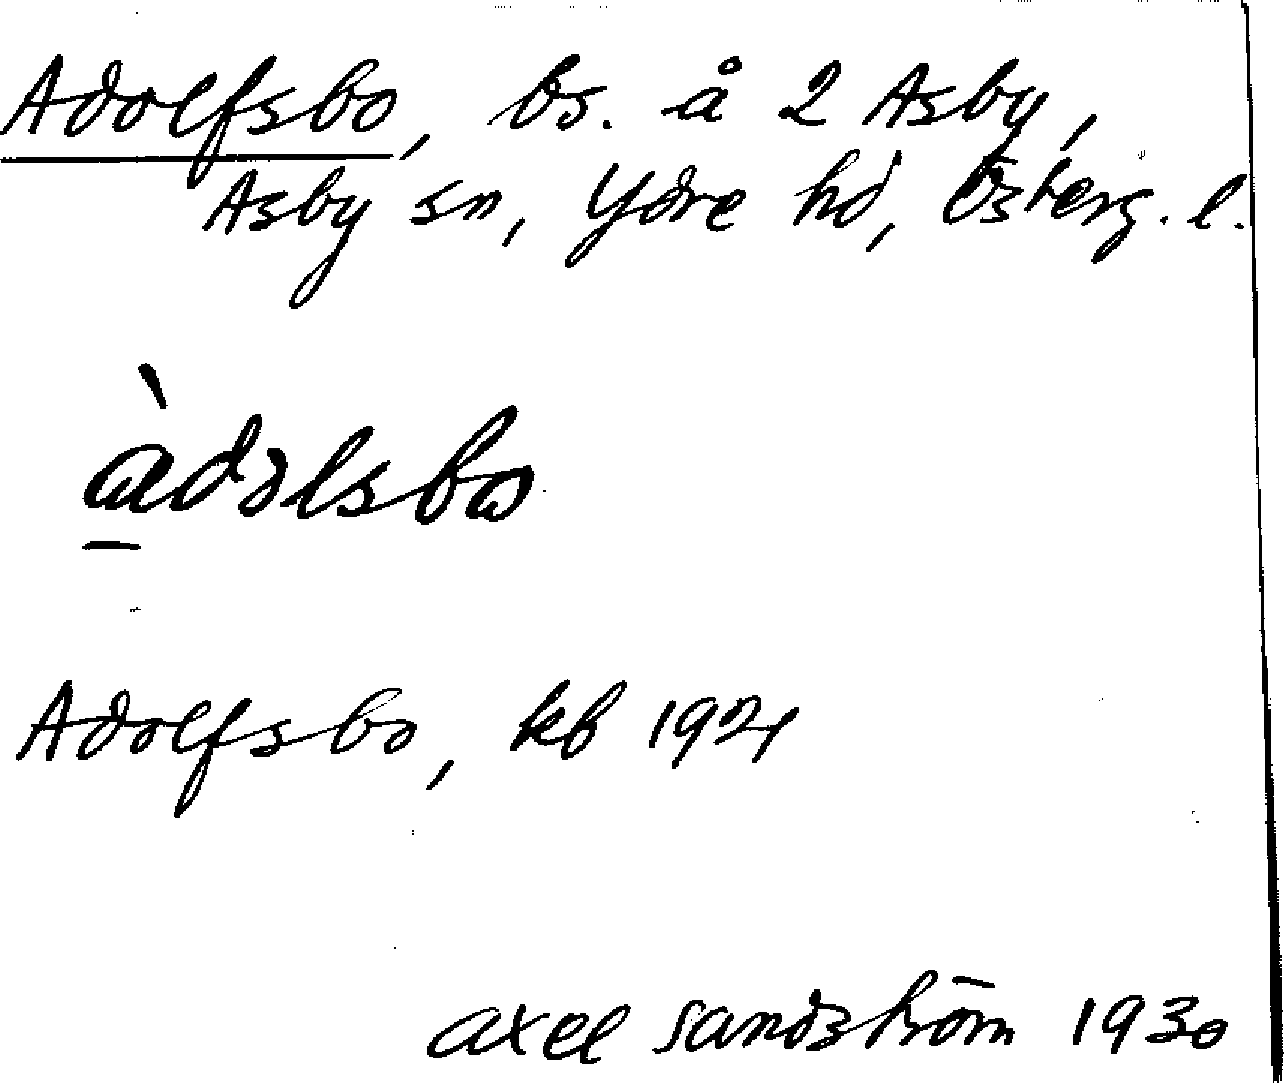 Adolfsbo, bs. å 2 Asby,
Asby sn, Ydre hd, Österg. l.
àdɔlsbo
Adolfsbo, kb 1921
Axel Sandström 1930